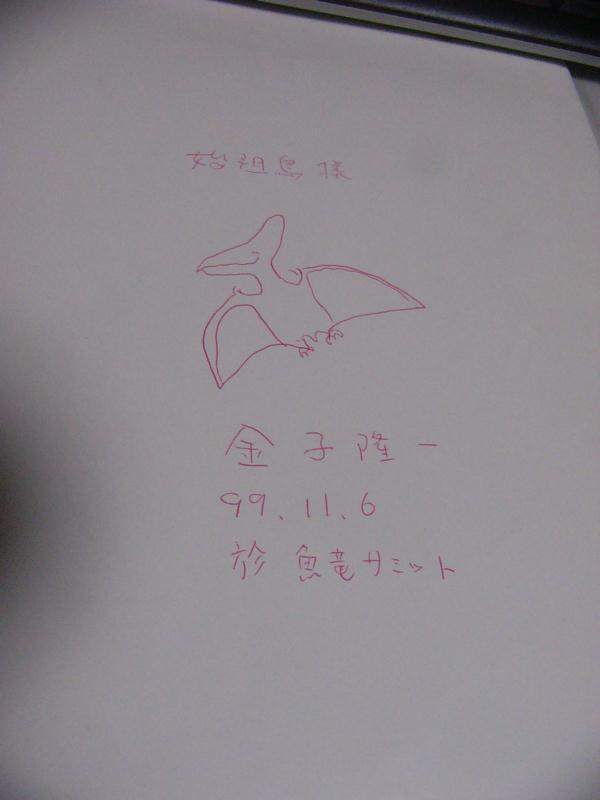 始祖鳥様
金子隆一
99.11.6
於 魚竜サミット